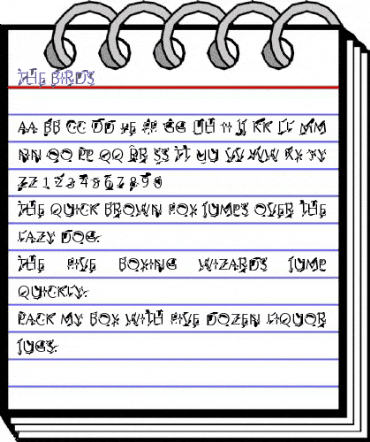 THE BIRDS
AA BB CC DD EE FF GG HH II JJ KK LL MM
NN OO PP QQ RR SS TT UU VV WW XX YY
ZZ 1 2 3 4 5 6 7 8 9 0
THE QUICK BROWN FOX JUMPS OVER THE
LAZY DOG.
THE FIVE BOXING WIZARDS JUMP
QUICKLY.
PACK MY BOX WITH FIVE DOZEN LIQUOR
JUGS.